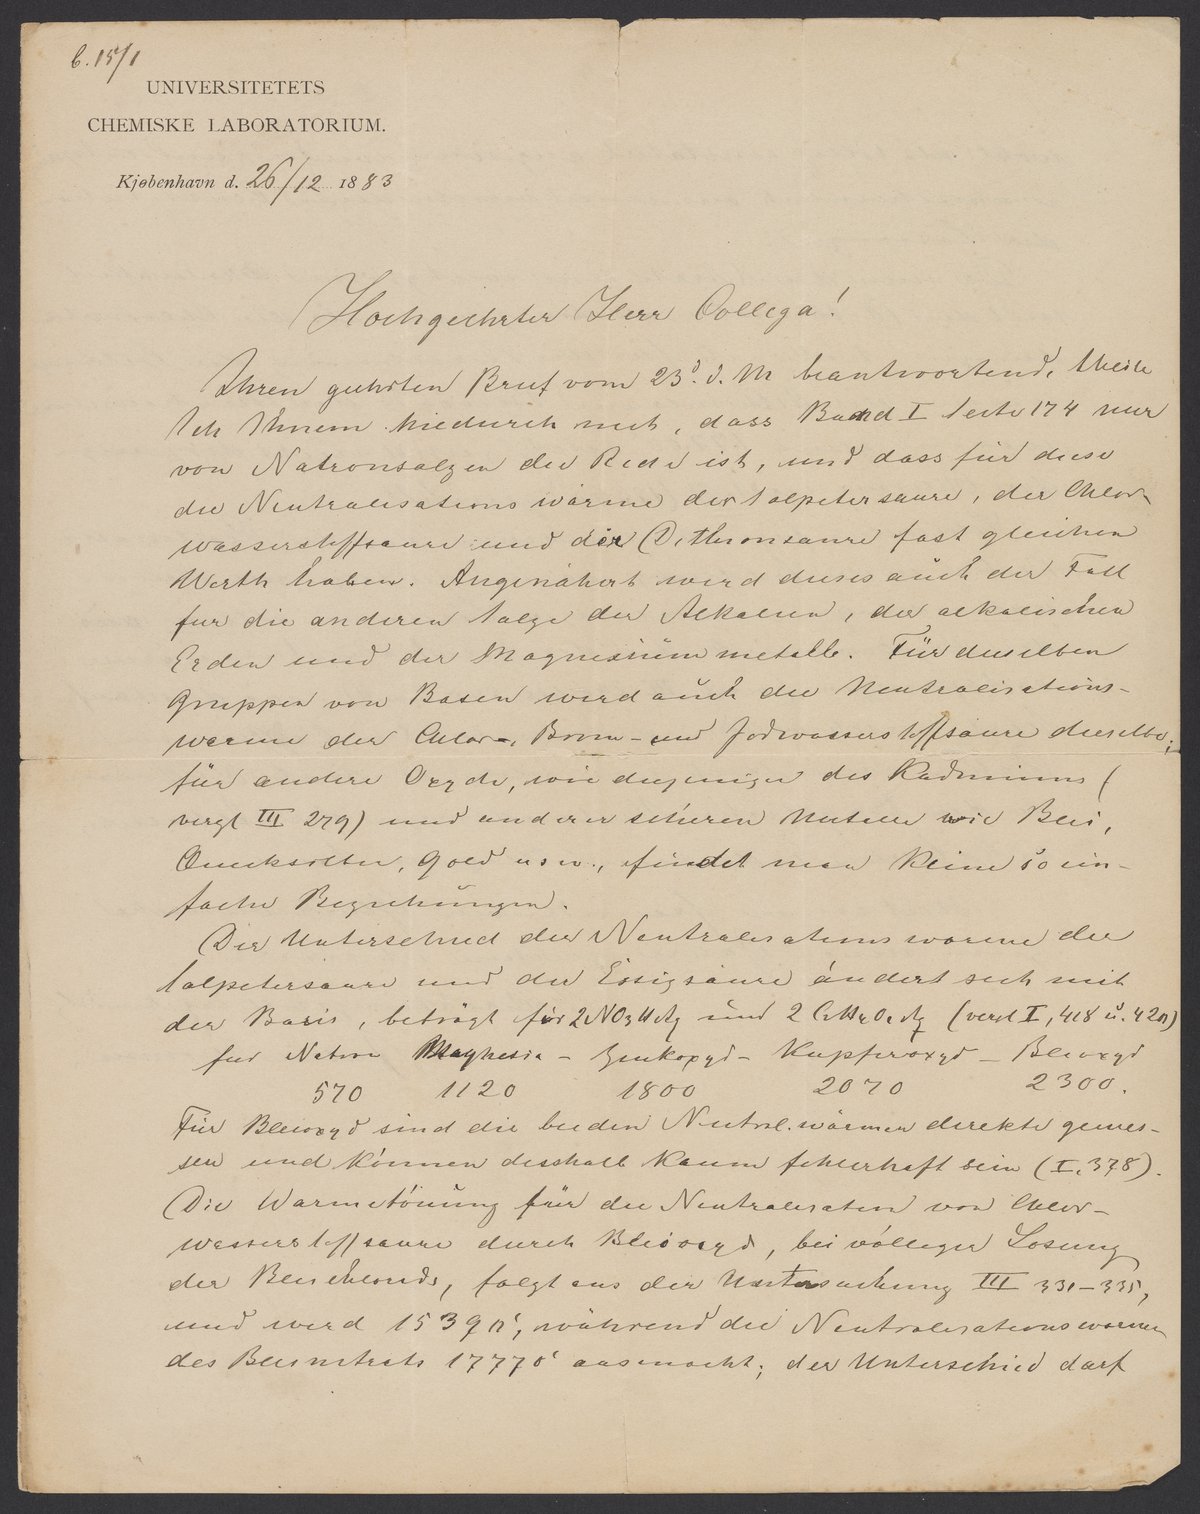 b. 15/1
UNIVERSITETETS
CHEMISKE LABORATORIUM.
Kjøbenhavn d. 26/12 1883
Hochgeehrter Herr Collega!
Ihren geehrten Brief vom 23d. d. M beantwortend, theile
Ich Ihnen hiedurch mit, dass Band I Seite 174 nur
von Natronsalzen die Rede ist, und dass für diese
die Neutralisationswärme der Salpetersäure, der Chlor-
wasserstoffsäure und der Dithionsäure fast gleichen
Werth haben. Angenähert wird dieses auch der Fall
für die anderen Salze der Alkalien, der alkalischen
Erden und der Magnesiummetalle. Für dieselben
Gruppen von Basen wird auch die Neutralisations-
wärme der Chlor-, Brom- und Jodwasserstoffsäure dieselbe;
für andere Oxyde, wie diejenigen des Kadmiums (
vergl III 279) und anderer schweren Metalle wie Blei,
Quecksilber, Gold u s w., findet man keine so ein-
fache Beziehungen.
Der Unterschied der Neutralisationswärme der
Salpetersäure und der Essigsäure ändert sich mit
der Basis, beträgt für 2NO3HAq und 2 (vergl I, 418 u. 420)
für Natron Magnesia - Zinkoxyd - Kupferoxyd - Bleioxyd
570 1120 1800 2070 2300.
Für Bleioxyd sind die beiden Neutral.wärmen direkte gemes-
sen und können desshalb kaum fehlerhaft sein (I, 378).
Die Wärmetönung für die Neutralisation von Chlor-
wasserstoffsäure durch Bleioxyd, bei völliger Lösung
der Bleichlorids, folgt aus der Untersuchung III 331-335,
und wird 15390c, während die Neutralisationswärme
des Bleinitrats 17770c ausmacht; der Unterschied darf